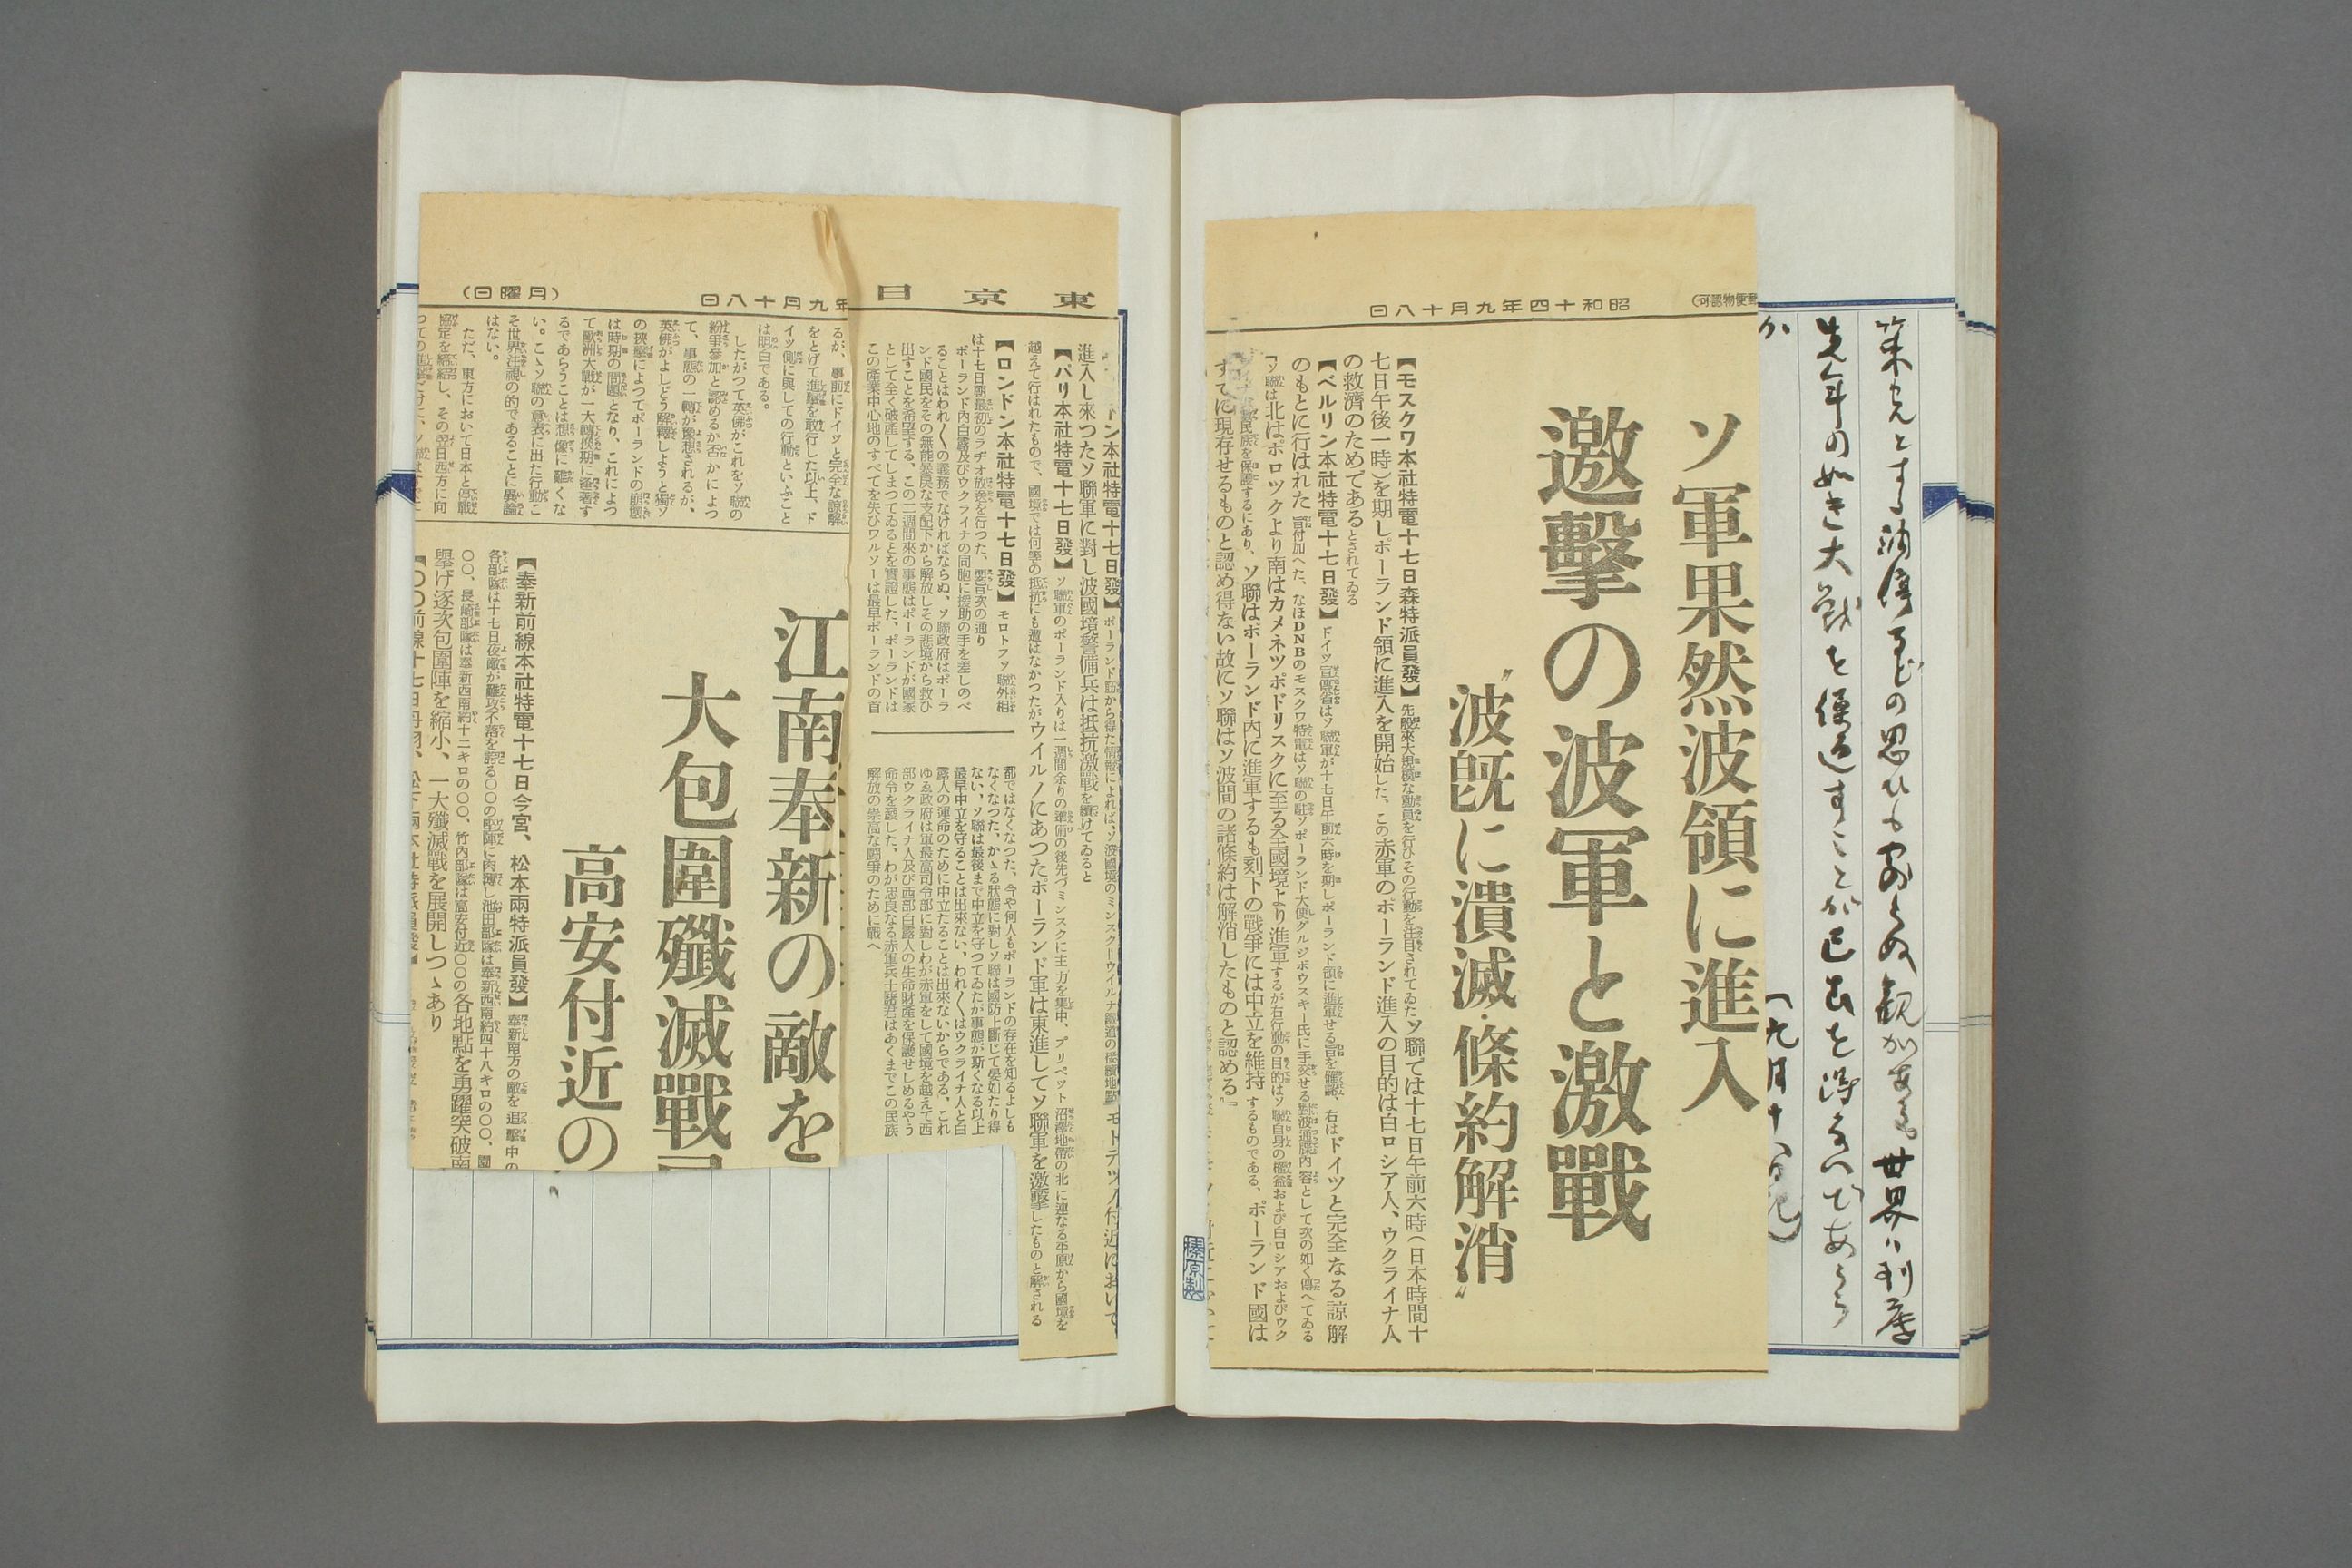 先年の如き大戦を
九月十八日
郵便物認可)
昭和十四年九月十八日
ソ軍果然波領に進入
邀撃の波軍と激戰
〝波既に潰滅・條約解消〟
【モスクワ本社特電十七日森特派員發】先般來大規模な動員を行ひその行動を注目されてゐたソ聯では十七日午前六時(日本時間十
七日午後一時)を期しポーランド領に進入を開始した、この赤軍のポーランド進入の目的は白ロシア人、ウクライナ人
の救濟のためであるとされてゐる
【ベルリン本社特電十七日發】ドイツ宣傳省はソ聯軍が十七日午前六時を期しポーランド領に進軍せる旨を確認、右はドイツと完全なる諒解
のもとに行はれた旨付加へた、なほDNBのモスクワ特電はソ聯の駐ソポーランド大使グルジボウスキー氏に手交せる對波通牒內容として次の如く傳へてゐる
「ソ聯は北はポロツクより南はカメネツポドリスクに至る全國境より進軍するが右行動の目的はソ聯自身の權益および白ロシアおよびウク
民族を保護するにあり、ソ聯はポーランド內に進軍するも刻下の戰爭には中立を維持するものである、ポーランド國は
すでに現存せるものと認め得ない故にソ聯はソ波間の諸條約は解消したものと認める」
榛原製
東京日
年九月十八日
(月曜日)
ン本社特電十七日發】ポーランド筋から得た情報によれば、ソ波國境のミンスク=ウイルナ鐵道の接續地點モロデツノ付近において
進入し來つたソ聯軍に對し波國境警備兵は抵抗激戰を續けてゐると
【パリ本社特電十七日發】ソ聯軍のポーランド入りは一週間余りの準備の後先づミンスクに主力を集中、プリペット沼澤地帶の北に連なる平原から國境を
越えて行はれたもので、國境では何等の抵抗にも遭はなかつたがウイルノにあつたポーランド軍は東進してソ聯軍を激擊したものと解される
【ロンドン本社特電十七日發】モロトフソ聯外相
は十七日朝最初のラヂオ放送を行つた、要旨次の通り
ポーランド內白露及びウクライナの同胞に援助の手を差しのべ
ることはわれ〱の義務でなければならぬ、ソ聯政府はポーラ
ンド國民をその無能暴戾な支配下から解放しその悲境から救ひ
出すことを希望する、この二週間來の事態はポーランドが國家
として全く破產してしまつてゐるとを實證した、ポーランドは
この產業中心地のすべてを失ひワルソーは最早ポーランドの首
都ではなくなつた、今や何人もポーランドの存在を知るよしも
なくなつた、かゝる狀態に對しソ聯は國防上斷じて晏如たり得
ない、ソ聯は最後まで中立を守つてゐたが事態が斯くなる以上
最早中立を守ることは出來ない、われ〱はウクライナ人と白
露人の運命のために中立たることは出來ないからである、これ
ゆゑ政府は軍最高司令部に對しわが赤軍をして國境を越えて西
部ウクライナ人及び西部白露人の生命財產を保護せしめるやう
命令を發した、わが忠良なる赤軍兵士諸君はあくまでこの民族
解放の崇高な鬪爭のために戰へ
るが、事前にドイツと完全な諒解
をとげて進擊を敢行した以上、ド
イツ側に與しての行動といふこと
は明白である。
したがつて英佛がこれをソ聯の
紛爭參加と認めるか否かによつ
て、事態の一轉が豫想されるが、
英佛がよしどう解釋しようと獨ソ
の挾擊によつてポーランドの崩壞
は時期の問題となり、これによつ
て歐洲大戰が一大轉換期に逢着す
るであらうことは想像に難くな
い。こゝソ聯の意表に出た行動こ
そ世界注視の的であることに異論
はない。
ただ、東方において日本と停戰
協定を締結し、その翌日西方に向
江南奉新の敵を
大包圍殲滅戰
高安付近の
【奉新前線本社特電十七日今宮、松本兩特派員發】奉新南方の敵を追擊中の
各部隊は十七日夜敵が難攻不落を誇る〇〇の堅陣に肉薄し池田部隊は奉新西南約四十八キロの〇〇、園
〇〇、長崎部隊は奉新西南約十二キロの〇〇、竹內部隊は高安付近〇〇の各地點を勇躍突破南
擧げ逐次包圍陣を縮小、一大殲滅戰を展開しつゝあり